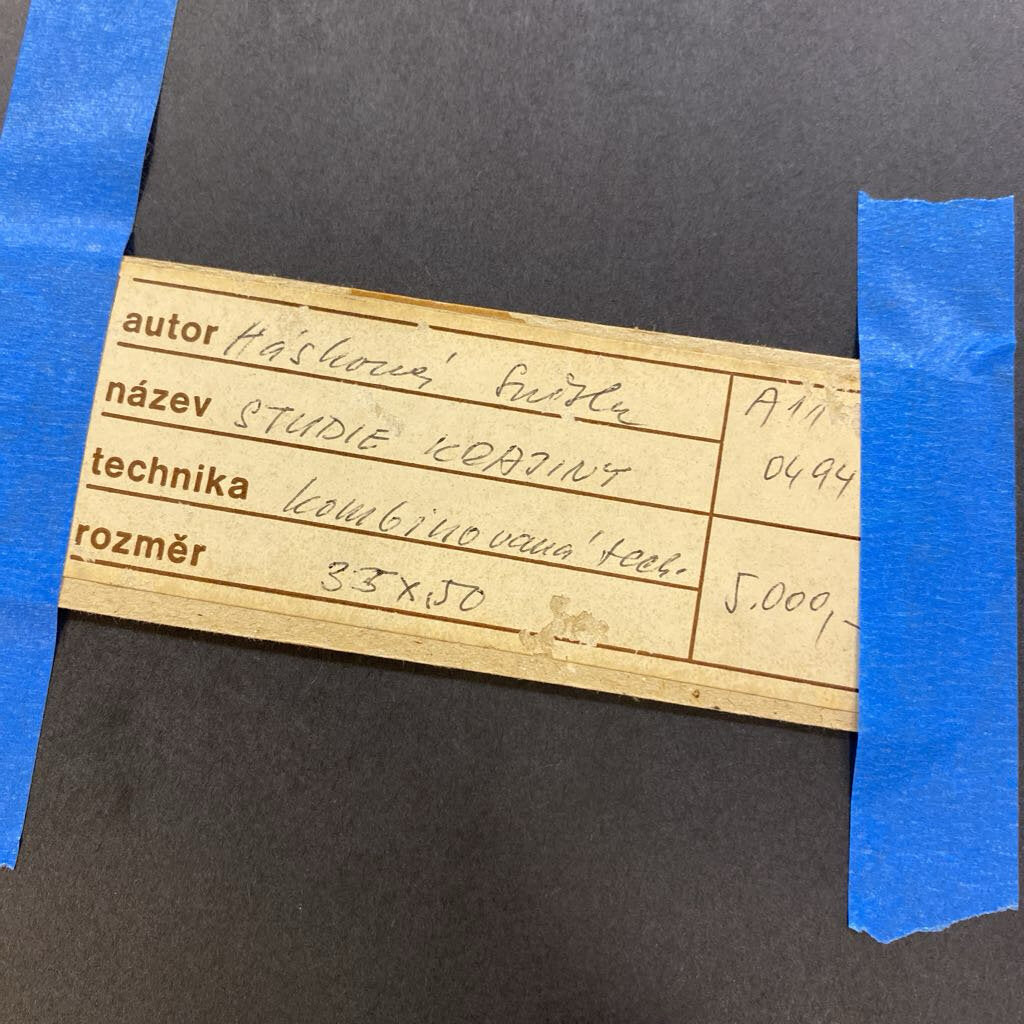 autor Hásková
název STUDIE KRAJINY
technika kombinovaná tech.
rozměr 35x50
A11
0494
5.000,-